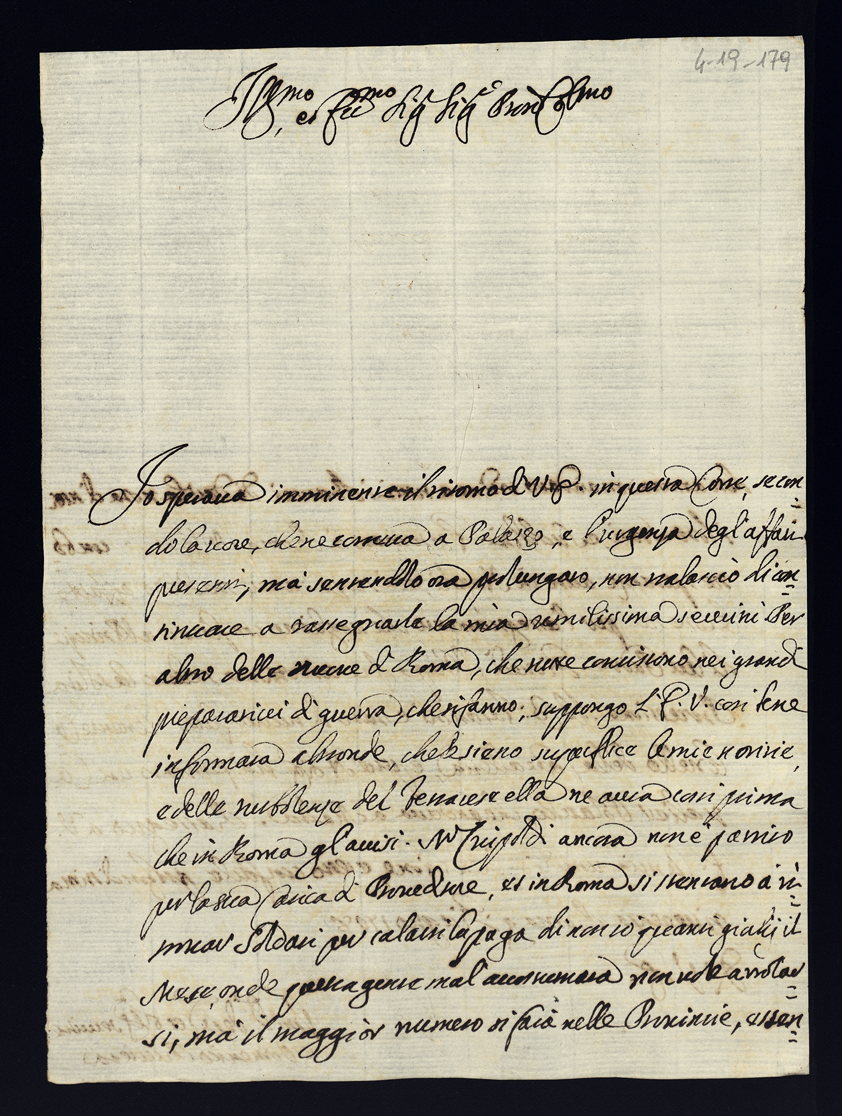 4-19-179
Ill.mo et Ecc.mo Sig.r Sig.r Pron Col.mo
Io sperava imminente il ritorno di V.E. in questa Corte, secon=
do la voce, che ne correva a Palazzo, e l'urgenza degl'affari
presenti, mà sentendolo ora prolungato, non tralascio di con=
tinuare a rassegnarle la mia umilissima servitù Per
altro delle nuove di Roma, che tutte consistono nei grandi
preparativi di guerra, che si fanno, suppongo l'E.V. così bene
informata altronde, che le siano superflue le mie notizie,
e delle turbolenze del ella ne avrà così prima
che in Roma gl'avvisi. Mr Cripoldi ancora non è partito
per la sua Carica di Proveditore, et in Roma si stentano à ri=
trovar Soldati per la paga di non so quanti giulij il
Mese, onde questa gente mal accostumata non vuole arrolar=
si, mà il maggior numero si farà nelle Provincie, essen=